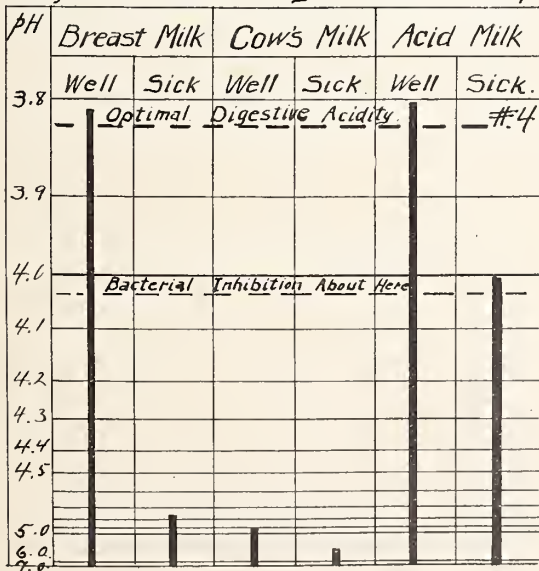 pH Breast Milk Cow's Milk Acid Milk
Well Sick. Well Sick. Well Sick.
3.8
Optimal Digestive Acidity. #4
3.9
4.0
Bacterial Inhibition About Here
4.1
4.2
4.3
4.4
4.5
5.0
6.0
7.0